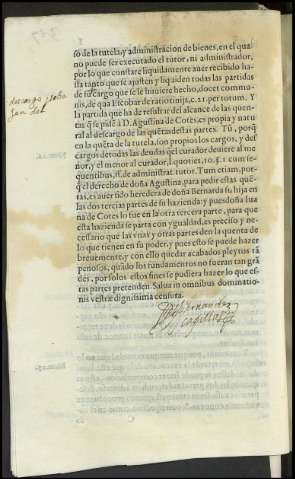 so de la tutela, y administracion de bienes, en el qual
no puede ser executado el tutor, ni administrador,
por lo que constare liquidamente auer recibido has
ta tanto que se ajusten y liquiden todas las partidas
de su cargo que se le huuiere hecho, docet commu
nis, de qua Escobar de ratiotinijs, c. 21. per totum. Y
la partida que ha de resultar del alcance de las quen-
tas q̃ se pide a D. Agustina de Cotes, es propia y natu
ral al descargo de las quẽtas destas partes. Tũ, porq̃
en la quẽta de la tutela, son propios los cargos, y des
cargos de todas las deudas q̃ el curador deuiere al me
nor, y el menor al curador, l. quoties, 10. §. 1. cum se-
quentibus, ff. de administrat. tutor. Tum etiam, por-
q̃ el derecho de doña Agustina, para pedir estas quẽ-
tas, es auer sido heredera de doña Bernarda su hija en
las dos tercias partes de su hazienda: y pues doña Iua
na de Cotes lo fue en la otra tercera parte, para que
esta hazienda se parta con ygualdad, es preciso y ne-
cessario que las vnas y otras partes den la quenta de
lo que tienen en su poder, y pues esto se puede hazer
breuemente, y con ello quedar acabados pleytos tã
penosos, quãdo los fundamentos no fueran tan grã
des, por solos estos fines se pudiera hazer lo que es-
tas partes pretenden. Salua in omnibus dominatio-
nis vestræ dignissima censura.
descargo